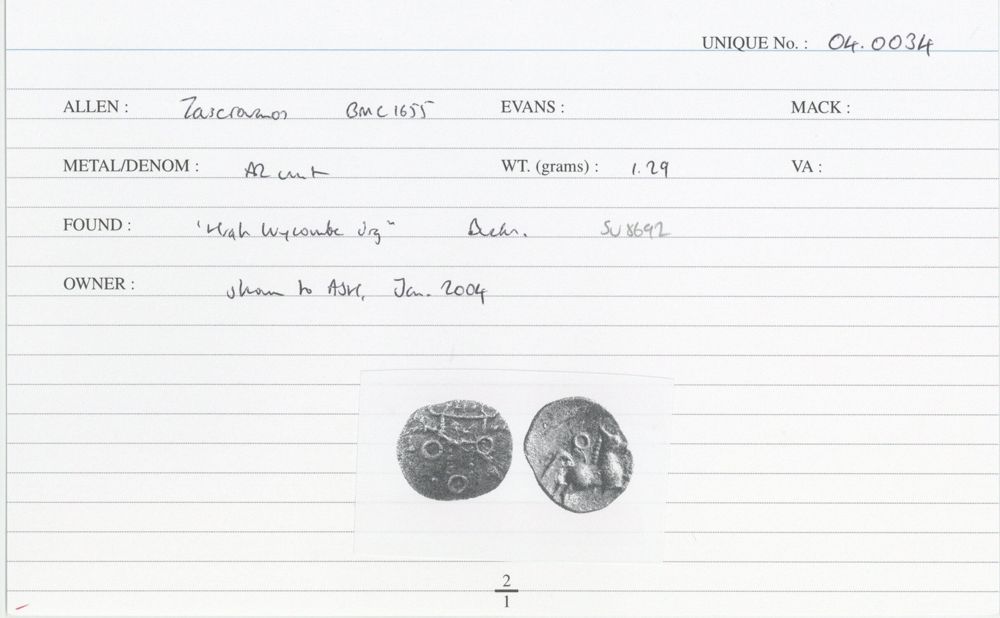 UNIQUE No. : 04.0034
ALLEN : Tasciovanos BMC 1655 EVANS : MACK :
METAL/DENOM : AR unit WT. (grams) : 1.29 VA :
FOUND : "High Wycombe Bucks. SU 8692
OWNER : shown to Jan. 2004
2
1